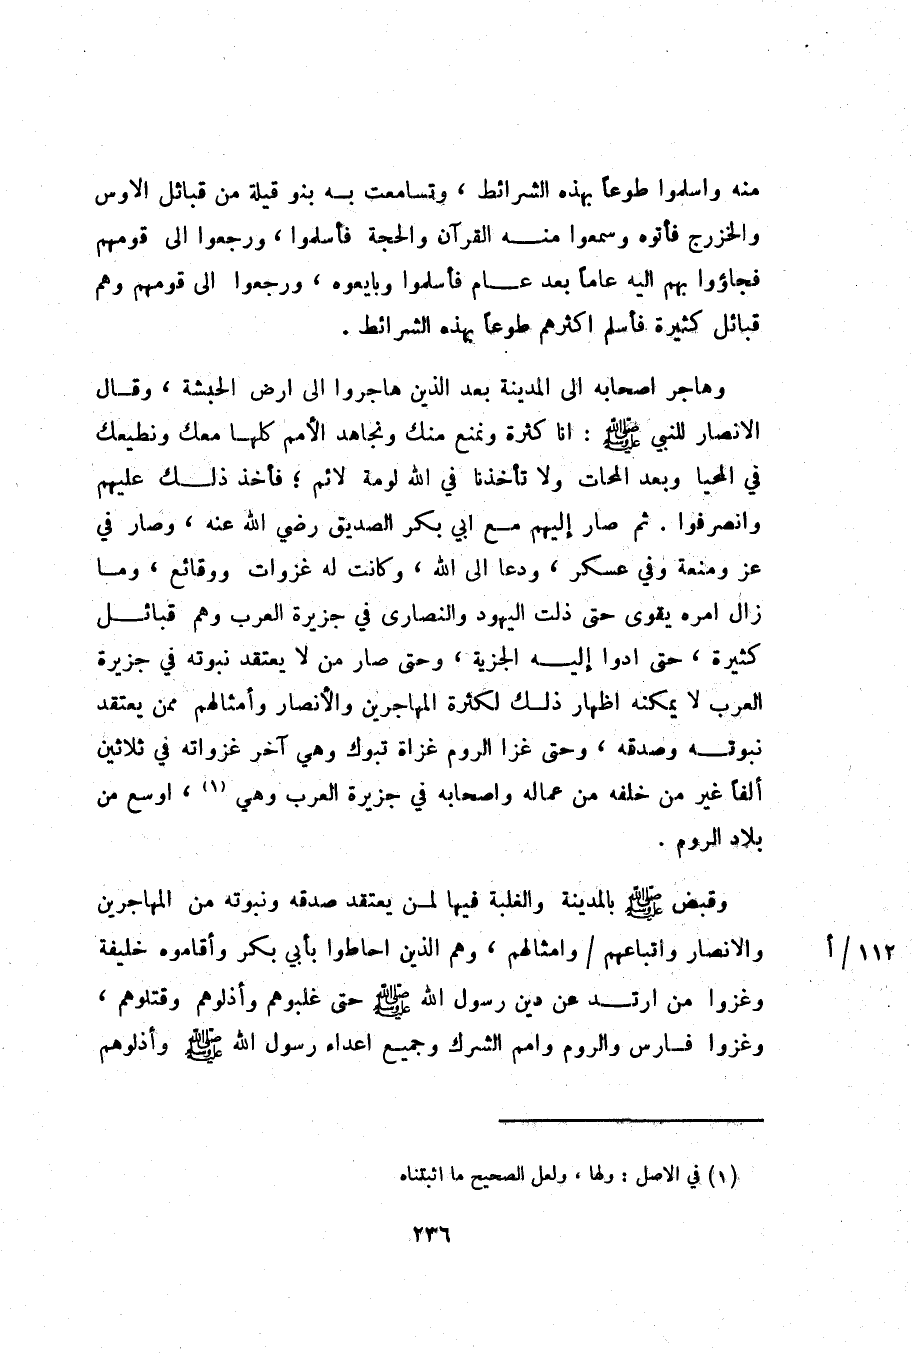 منه واسلموا طوعاً بهذه الشرائط ، وتسامعت بـه بنو قيلة من قبائل الاوس
والخزرج فأتوه وسمعوا منـــه القرآن والحجة فأسلموا ، ورجعوا الى قومهم
فجاؤوا بهم اليه عاماً بعد عـــام فأسلموا وبايعوه ، ورجعوا الى قومهم وهم
قبائل كثيرة فأسلم اكثرهم طوعاً بهذه الشرائط .
وهاجر اصحابه الى المدينة بعد الذين هاجروا الى ارض الحبشة ، وقـال
الانصار للنبي ﷺ : انا كثرة ونمنع منك ونجاهد الأمم كلهـا معك ونطيعك
في المحيا وبعد المحات ولا تأخذنا في الله لومة لائم ؛ فأخذ ذلـــك عليهم
وانصرفوا . ثم صار إليهم مـع ابي بكر الصديق رضي الله عنه ، وصار في
عز ومنعة وفي عسكر ، ودعا الى الله ، وكانت له غزوات ووقائع ، ومـا
زال امره يقوى حتى ذلت اليهود والنصارى في جزيرة العرب وهم قبائـــل
كثيرة ، حتى ادوا إليـــه الجزية ، وحتى صار من لا يعتقد نبوته في جزيرة
العرب لا يمكنه اظهار ذلـك لكثرة المهاجرين والأنصار وأمثالهم ممن يعتقد
نبوتـــه وصدقه ، وحتى غزا الروم غزاة تبوك وهي آخر غزواته في ثلاثين
ألفاً غير من خلفه من عماله واصحابه في جزيرة العرب وهي (١) ، اوسع من
بلاد الروم .
وقبض ﷺ بالمدينة والغلبة فيها لمـن يعتقد صدقه ونبوته من المهاجرين
والانصار واتباعهم / وامثالهم ، وهم الذين احاطوا بأبي بكر وأقاموه خليفة
١١٢ / أ
وغزوا من ارتـــد عن دين رسول الله ﷺ حتى غلبوهم وأذلوهم وقتلوهم ،
وغزوا فـارس والروم وامم الشرك وجميـع اعداء رسول الله ﷺ وأذلوهم
(١) في الاصل : ولها ، ولعل الصحيح ما اثبتناه
٢٣٦